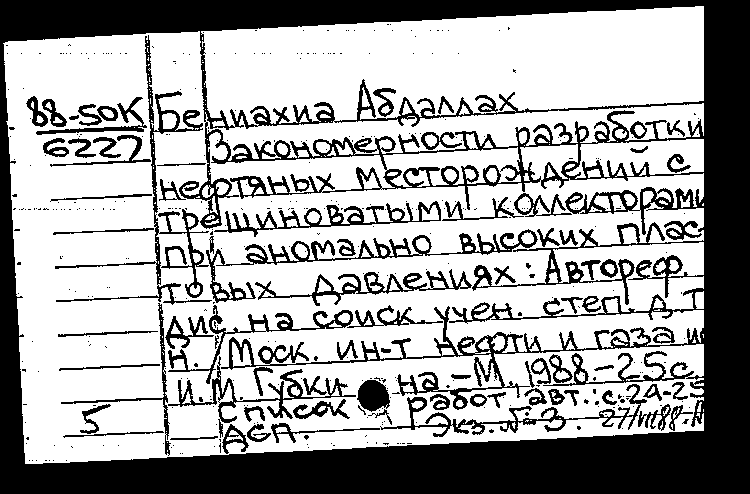 88-50К Бениахиа Абдаллах.
6227 Закономерности разработки
нефтяных месторождений с
трещиноватыми коллекторами
при аномально высоких плас-
товых давлениях: Автореф.
дис. на соиск. учен. степ. д.т.
н. / Моск. ин-т нефти и газа и
И.М. Губки на.-М., 1988.-25с.
Список работ авт.: с.24-25
5 ДСП. Экз. № 3. 27/VII88-Н